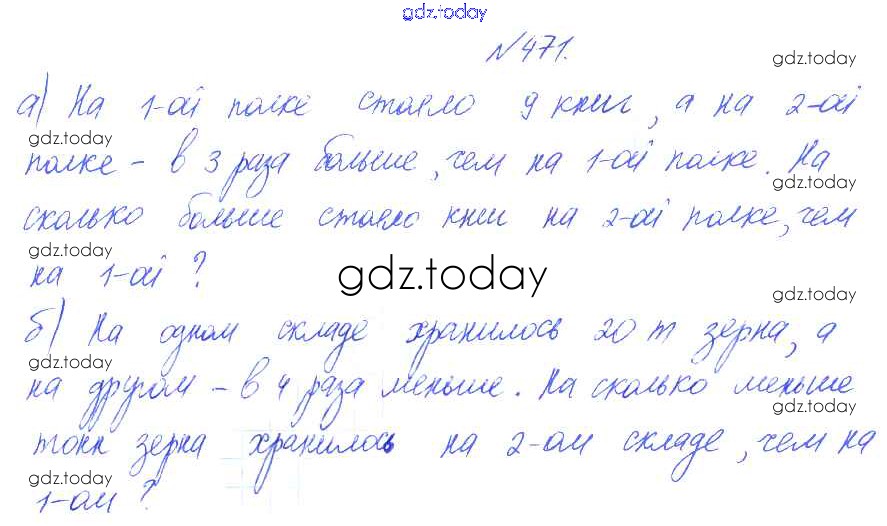 gdz.today
№471.
gdz.today
а) На 1-ой полке стояло 9 книг, а на 2-ой
gdz.today
полке - в 3 раза больше, чем на 1-ой полке. На
gdz.today
сколько больше стояло книг на 2-ой полке, чем
gdz.today
на 1-ой?
gdz.today
gdz.today
б) На одном складе хранилось 20 т зерна, а
gdz.today
на другом - в 4 раза меньше. На сколько меньше
gdz.today
тонн зерна хранилось на 2-ом складе, чем на
gdz.today
1-ом?
gdz.today